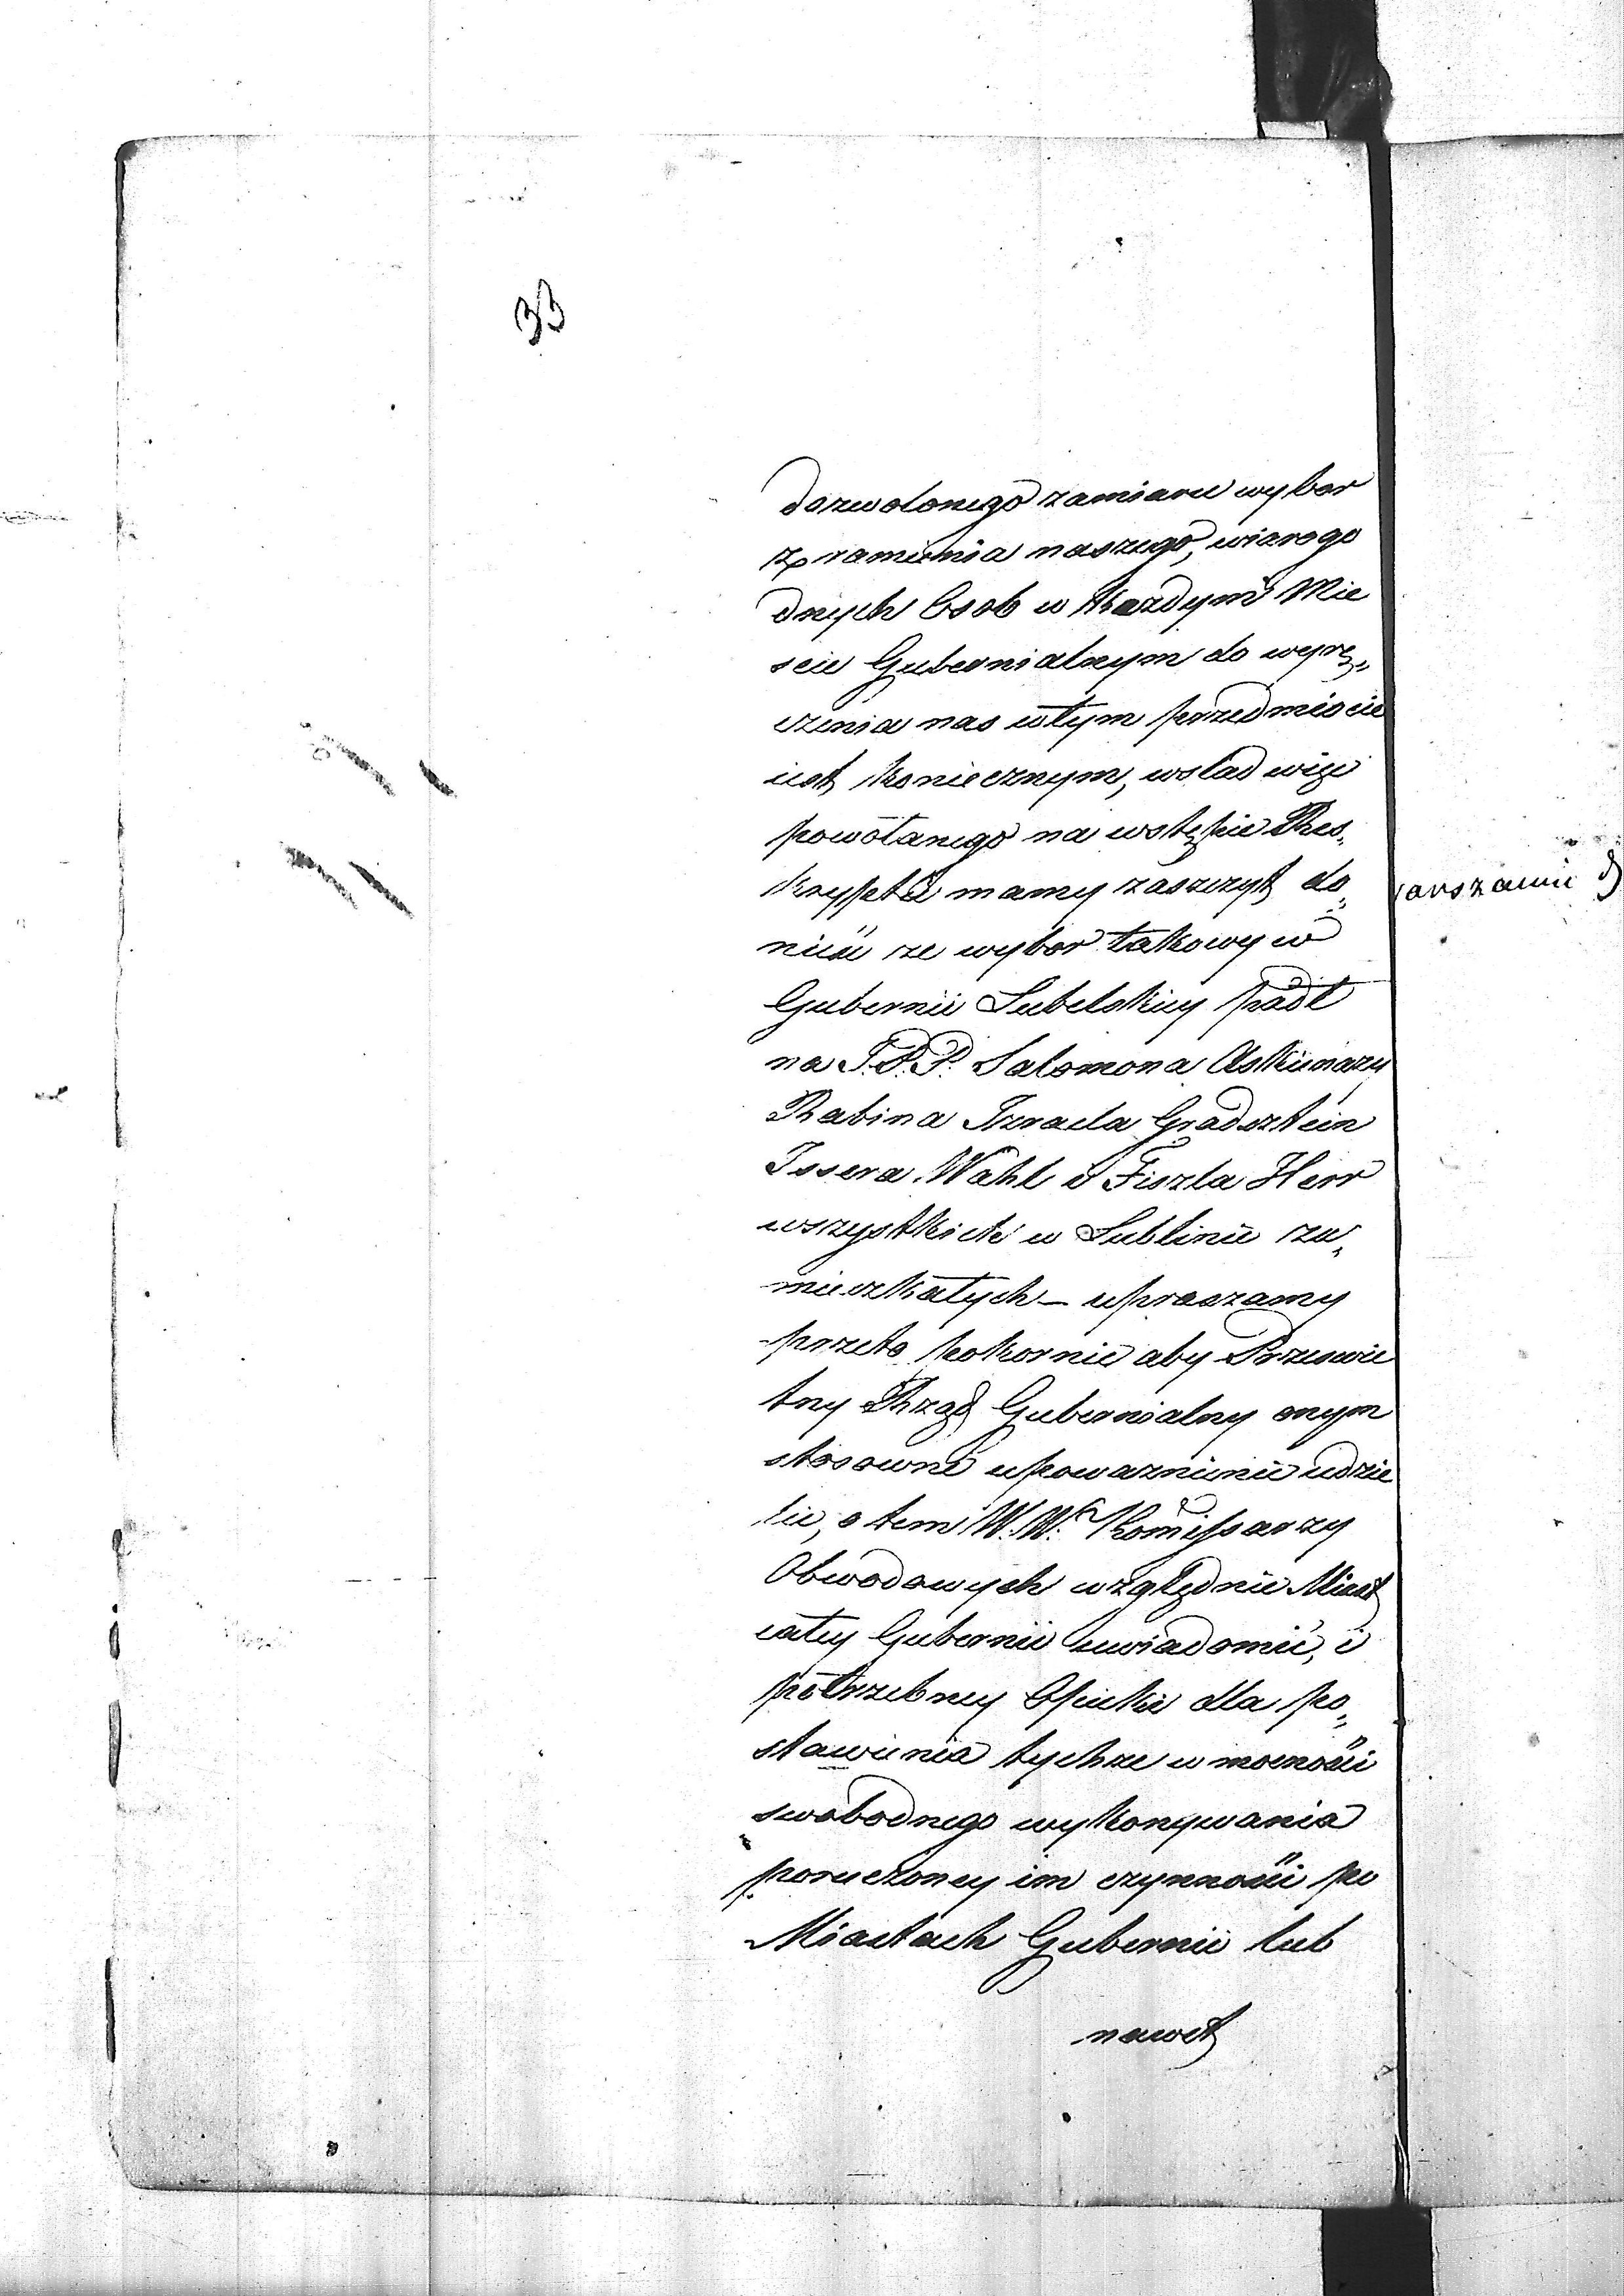 33
dozwolonego zamiaru wybor
z ramienia naszego, wiarogo
dnych Osob w każdym Mie
scie Gubernialnym do wyrę„
czenia nas w tym przedmiocie
iest koniecznym, wslad więc
powołanego na wstępie Res„
kryptu mamy zaszczyt do„
nieść ze wybor takowy w
Gubernii Lubelskiey padł
na P.P. Salomona Askienazy
Rabina Izraela Gradsztein
Issera Wahl i Fiszla Herr
wszystkich w Lublinie za„
mieszkałych – upraszamy
przeto pokornie aby Prześwie
tny Rząd Gubernialny onym
stosowne upoważnienie udzie
lić, o tem W.W. Kommissarzy
Obwodowych względnie Miast
całey Gubernii uwiadomić, i
potrzebney Opieki dla po„
stawienia tychże w możności
swobodnego wykonywania
poruczoney im czynności po
Miastach Gubernii lub
nawet
arszawie d